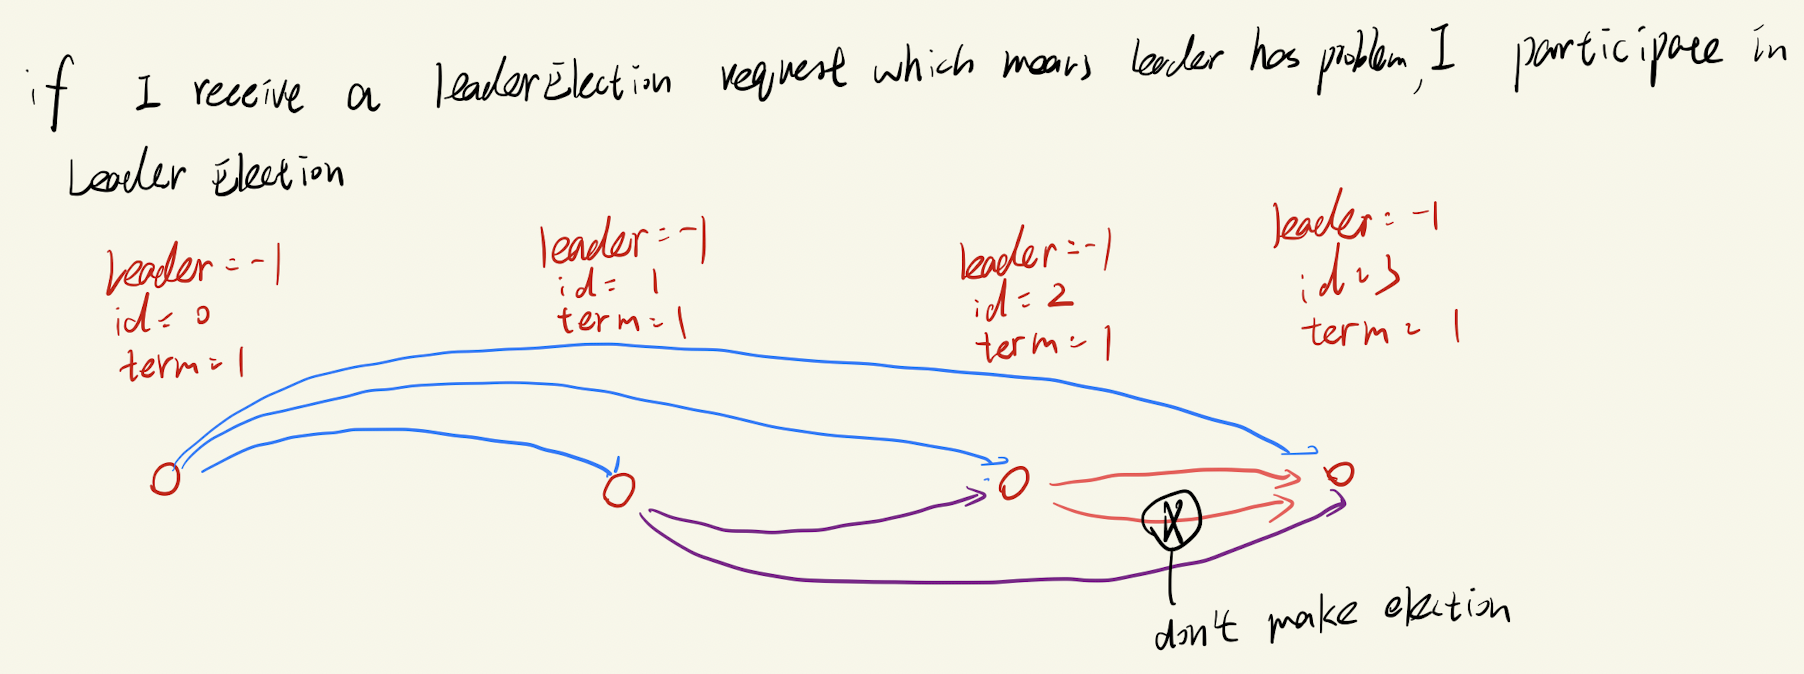 if I receive a leaderElection request which means leader has problem, I participate in
Leader Election
leader = -1
id = 0
term = 1
leader = -1
id = 1
term = 1
leader = -1
id = 2
term = 1
leader = -1
id = 3
term = 1
don't make election